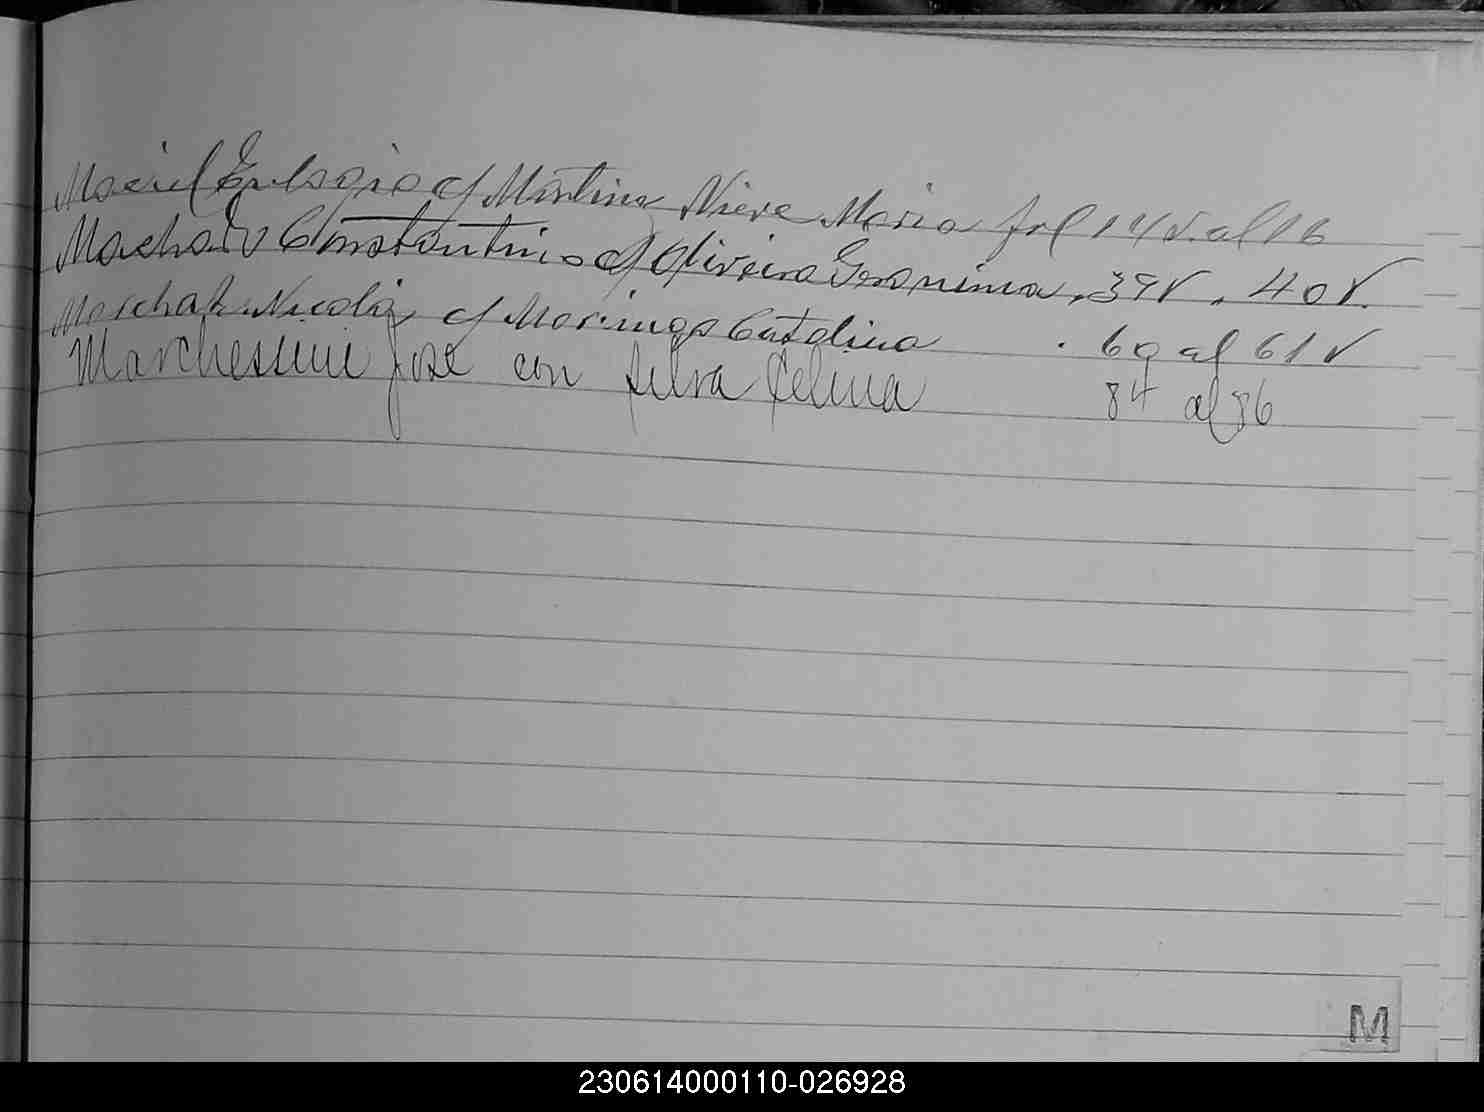 Maciel Eulogio c/ Martinez Nieve Maria fol 14 v. al 16
Machado Constantino c/ Oliveira Geronima. 39v. 40v.
Marchak Nicolaz c/ Moringo Catalina . 60 al 61 v
Marchessini José con Silva Celina 84 al 86
M
230614000110-026928